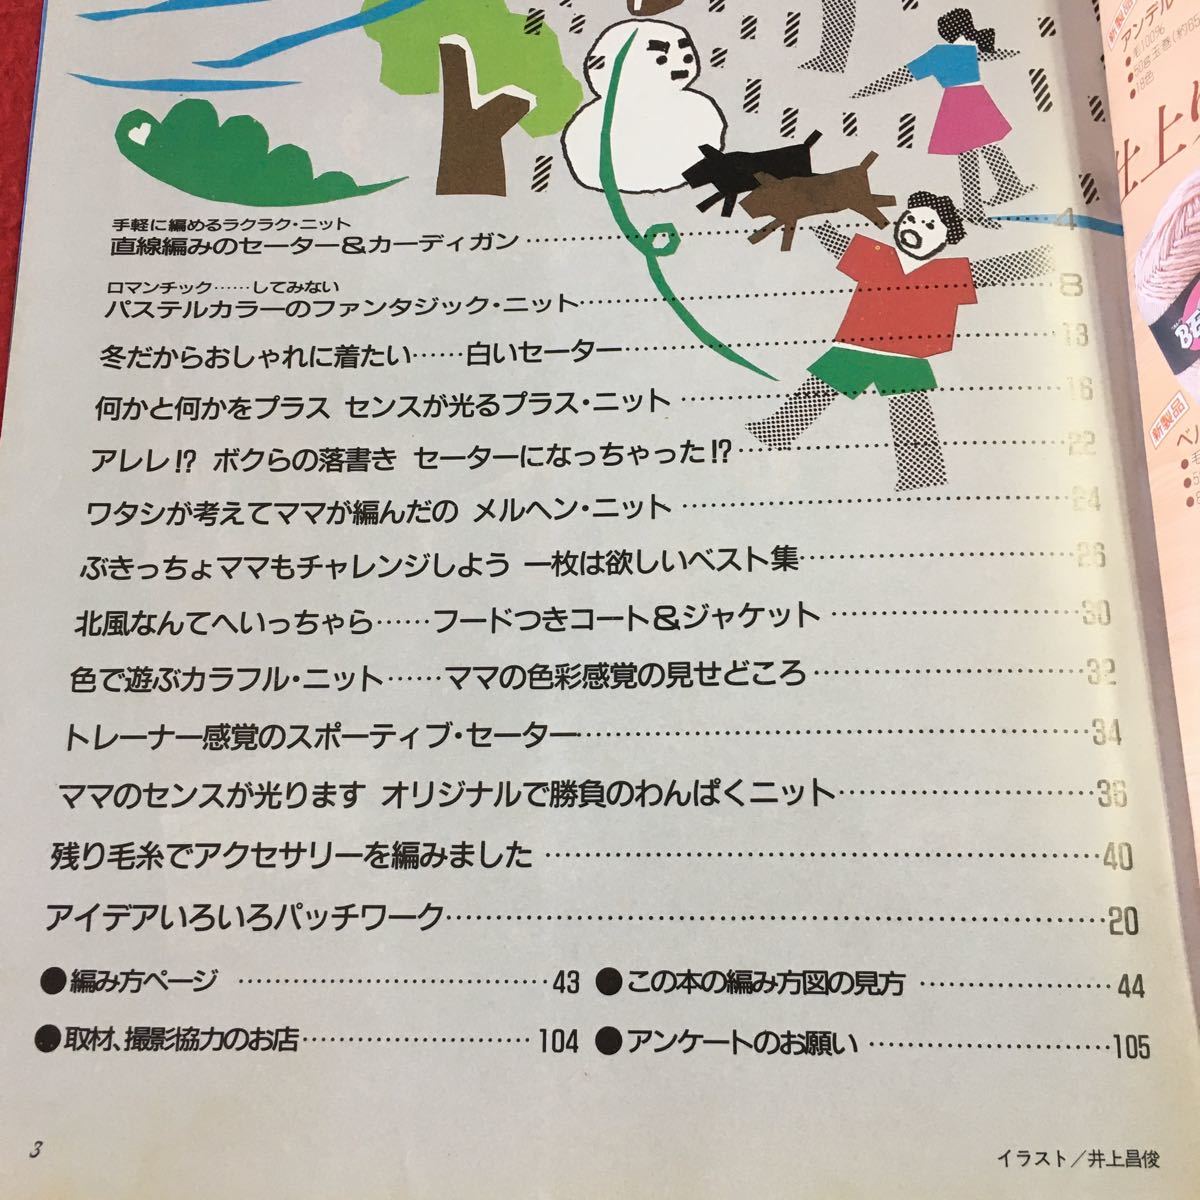 手軽に編めるラクラク・ニット
直線編みのセーター&カーディガン……4
ロマンチック……してみない
パステルカラーのファンタジック・ニット……8
冬だからおしゃれに着たい……白いセーター……13
何かと何かをプラス センスが光るプラス・ニット……16
アレレ!? ボクらの落書き セーターになっちゃった!?……22
ワタシが考えてママが編んだの メルヘン・ニット……24
ぶきっちょママもチャレンジしよう 一枚は欲しいベスト集……26
北風なんてへいっちゃら……フードつきコート&ジャケット……30
色で遊ぶカラフル・ニット……ママの色彩感覚の見せどころ……32
トレーナー感覚のスポーティブ・セーター……34
ママのセンスが光ります オリジナルで勝負のわんぱくニット……36
残り毛糸でアクセサリーを編みました……40
アイデアいろいろパッチワーク……20
●編み方ページ……43 ●この本の編み方図の見方……44
●取材、撮影協力のお店……104 ●アンケートのお願い……105
3
イラスト/井上昌俊
新製品
アンデル
●毛100%
●50g玉巻
●18色
井上
新製品